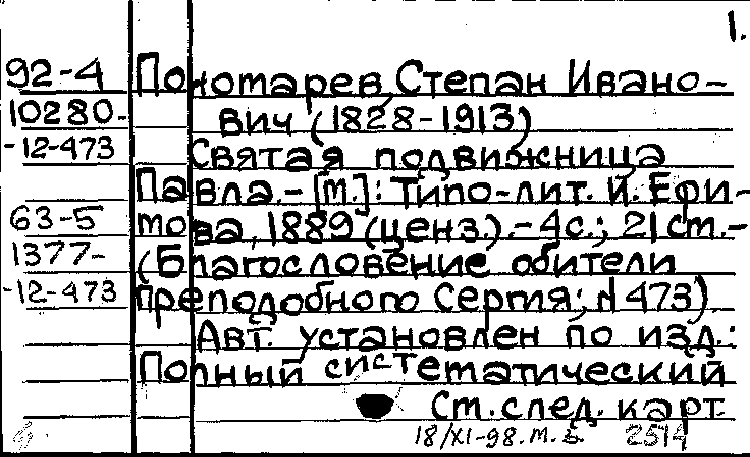 1.
92-4 Пономарев, Степан Ивано-
10280- вич (1828-1913)
-12-473 Святая подвижница
Павла.-[М.]: Типо-лит. И. Ефи-
63-5 мова, 1889 (ценз.).-4с.; 21см.-
1377- (Благословение обители
-12-473 преподобного Сергия; N 473).
Авт. установлен по изд.:
Полный систематический
См. след. карт.
18/XI-98. М. Б. 2514